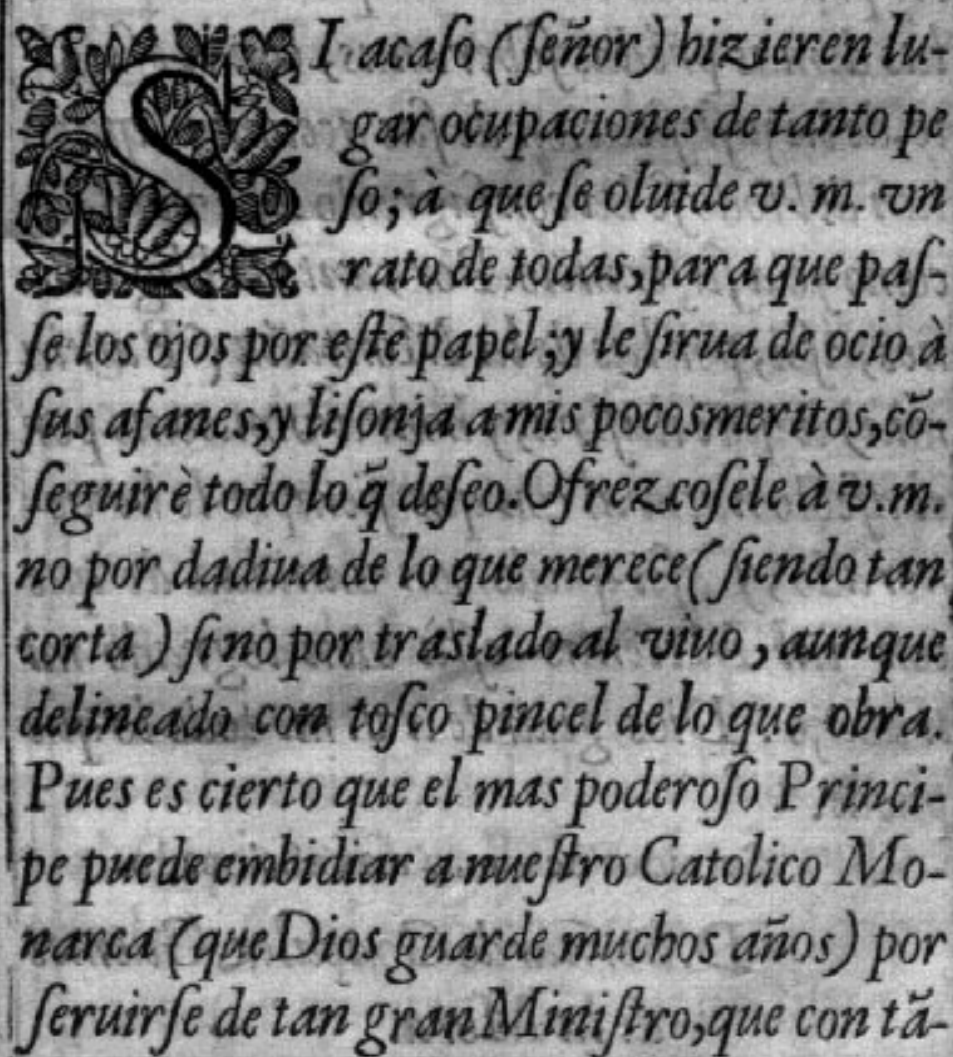 SI acaſo (ſeñor) hizieren lu-
gar ocupaciones de tanto pe
ſo; à que ſe oluide v. m. vn
rato de todas, para que paſ-
ſe los ojos por eſte papel; y le ſirua de ocio à
ſus afanes, y liſonja a mis pocos meritos, cõ-
ſeguirè todo lo q̃ deſeo. Ofrezcoſele à v. m.
no por dadiua de lo que merece (ſiendo tan
corta) ſino por traslado al viuo, aunque
delineado con toſco pincel de lo que obra.
Pues es cierto que el mas poderoſo Princi-
pe puede embidiar a nueſtro Catolico Mo-
narca (que Dios guarde muchos años) por
ſeruirſe de tan gran Miniſtro, que con tã-